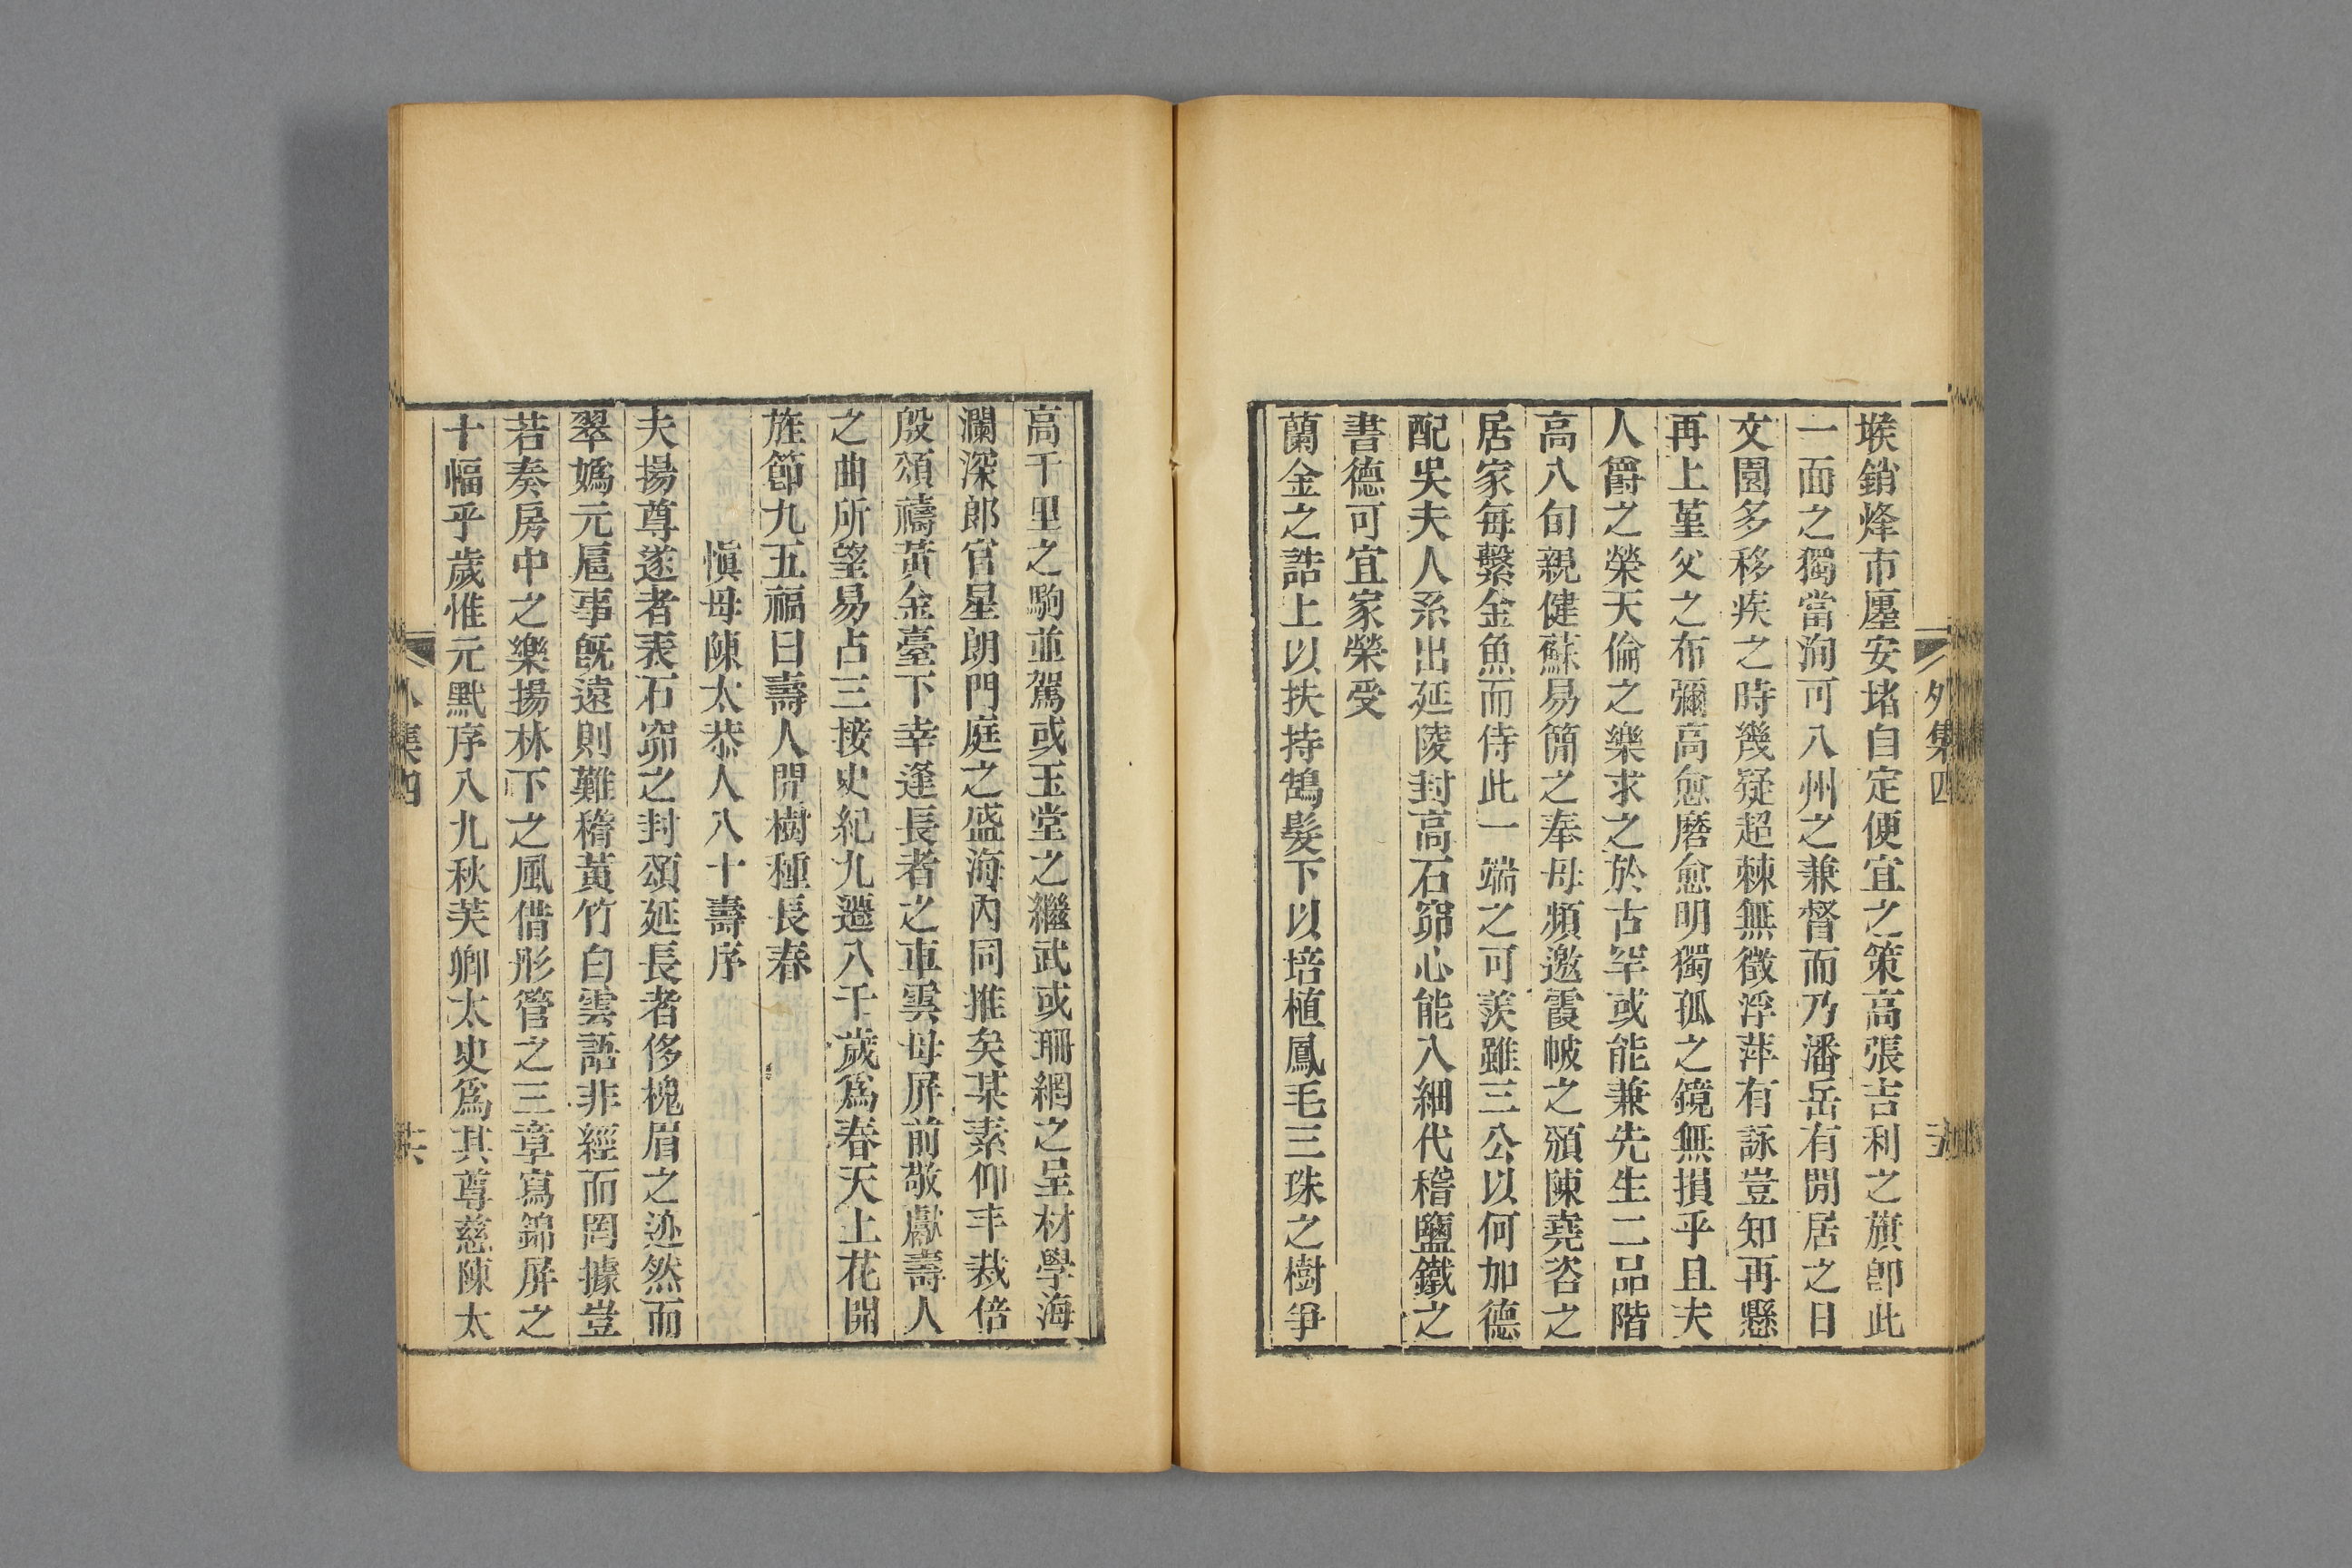 外集四
堠銷烽市廛安堵自定便宜之策高張吉利之旗卽此
一面之獨當洵可八州之兼督而乃潘岳有閒居之日
文園多移疾之時幾疑超棘無徵浮萍有詠豈知再懸
再上堇父之布彌高愈磨愈明獨孤之鏡無損乎且夫
人爵之榮天倫之樂求之於古罕或能兼先生二品階
高八旬親健蘇易簡之奉母頻邀霞帔之頒陳堯咨之
居家每繫金魚而侍此一端之可羨雖三公以何加德
配吳夫人系出延陵封高石窌心能入細代稽鹽鐵之
書德可宜家榮受
蘭金之誥上以扶持鵠髮下以培植鳳毛三珠之樹爭
高千里之駒並駕或玉堂之繼武或珊網之呈材學海
瀾深郎官星朗門庭之盛海內同推矣某素仰丰裁倍
殷頌禱黃金臺下幸逢長者之車雲母屏前敬獻壽人
之曲所望易占三接史紀九遷八千歲爲春天上花開
旌節九五福曰壽人閒樹種長春
愼母陳太恭人八十壽序
夫揚尊遂者表石窌之封頌延長者侈槐眉之迹然而
翠嬀元扈事旣遠則難稽黃竹白雲語非經而罔據豈
若奏房中之樂揚林下之風借彤管之三章寫錦屏之
十幅乎歲惟元黓序入九秋芙卿太史爲其尊慈陳太
外集四